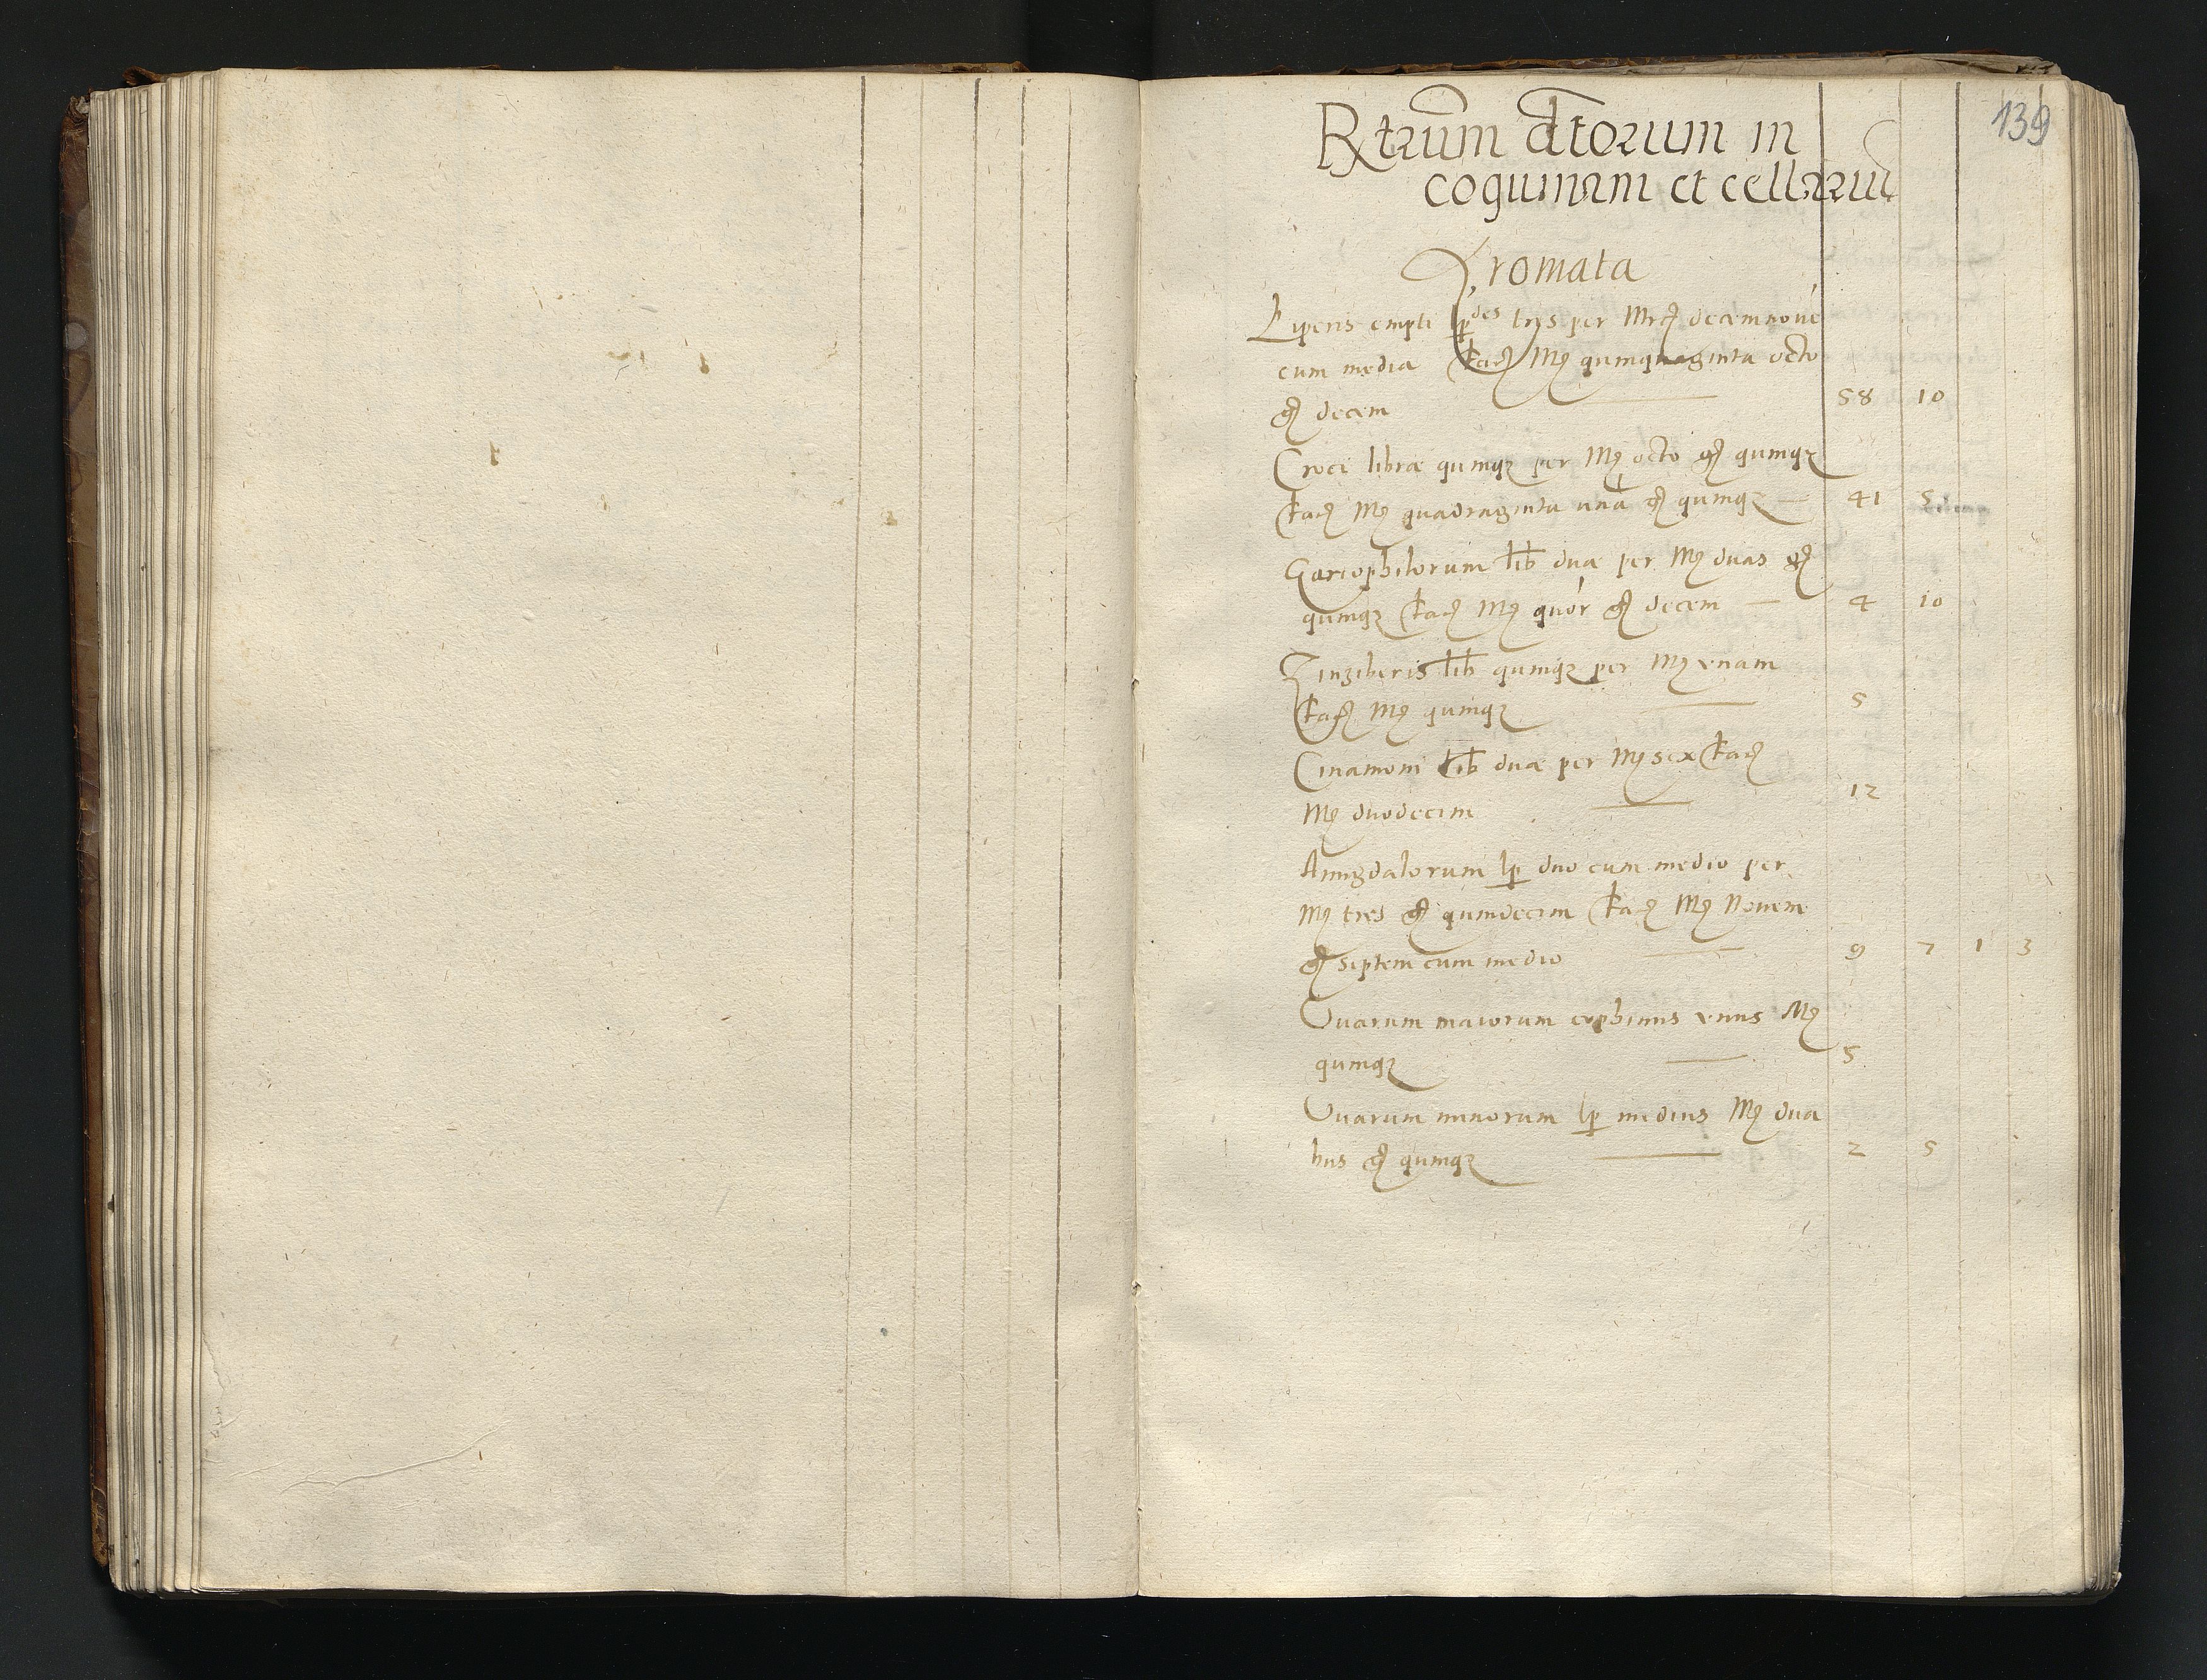 139
Rtrum dtorum in
coquinam et cellariu
Aromata
Piperis empti lp des trys per Mrcs decemnoue
cum media ffacit Mr quinquaginta octo
gr decem 58 10
Croci libræ quinq per Mr octo gr quinq
ffacit Mr quadraginta una gr quinq 41 5
Gariophilorum lib duæ per Mr duas gr
quinq ffacit Mr quor gr decem 4 10
Zinziberis lib quinq per Mr vnam
ffacit Mr quinq 5
Cinamoni lib duæ per Mr sex ffacit
Mr duodecim 12
Amigdalorum lp duo cum medio per
Mr tres gr quindecim ffacit Mr Nouem
gr septem cum medio 9 7 1 3
Vuarum maiorum cophinus vnus Mr
quinq 5
Vuarum minorum lp medius Mr dua
bus gr quinq 2 5